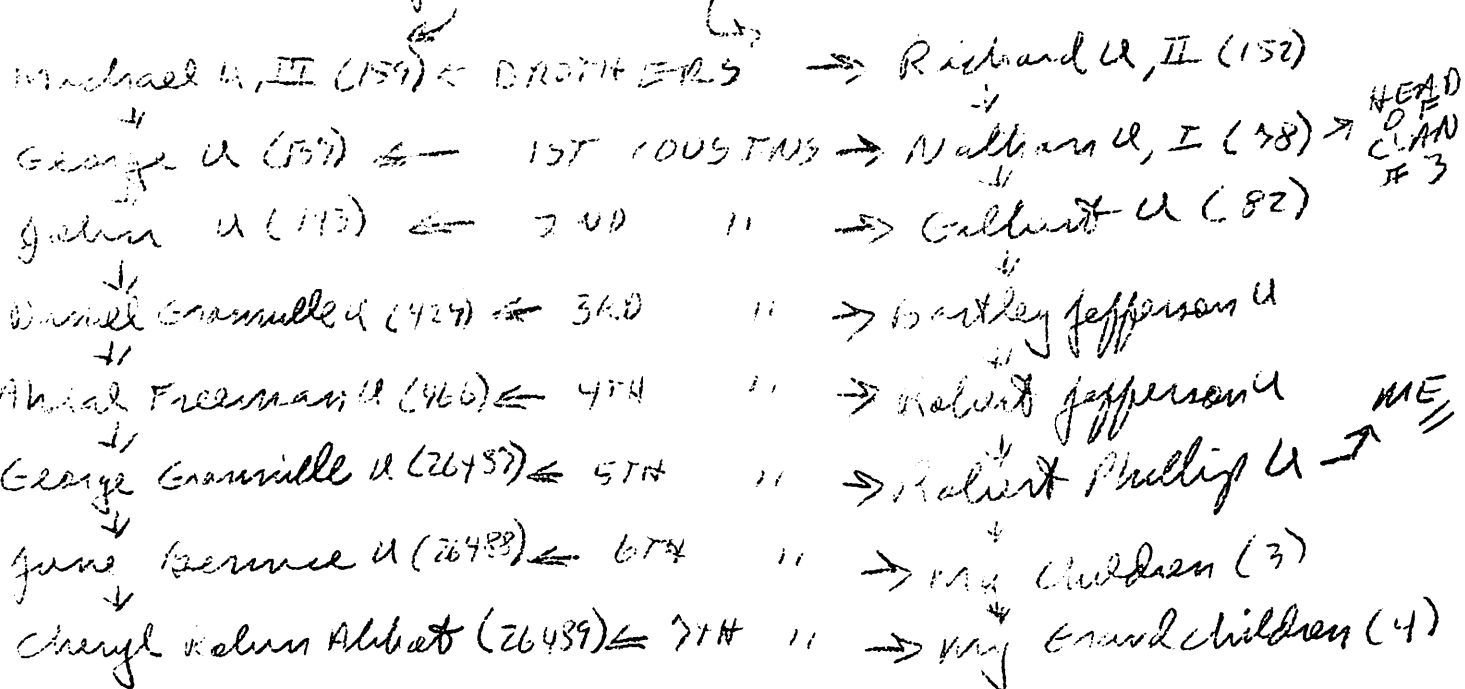 Michael U, III (159) ← BROTHERS → Richard U, II (152)
George U (139) ← 1ST COUSINS → Nathan U, I (38) → HEAD OF CLAN # 3
John U (143) ← 2ND " → Gilbert U (82)
Daniel Granville U (424) ← 3RD " → Bartley Jefferson U
Freeman U (466) ← 4TH " → Robert Jefferson U
George Granville U (26487) ← 5TH " → Robert Phillip U → ME
June Bernice U (26488) ← 6TH " → My Children (3)
Cheryl Abbot (26489) ← 7TH " → My Grandchildren (4)